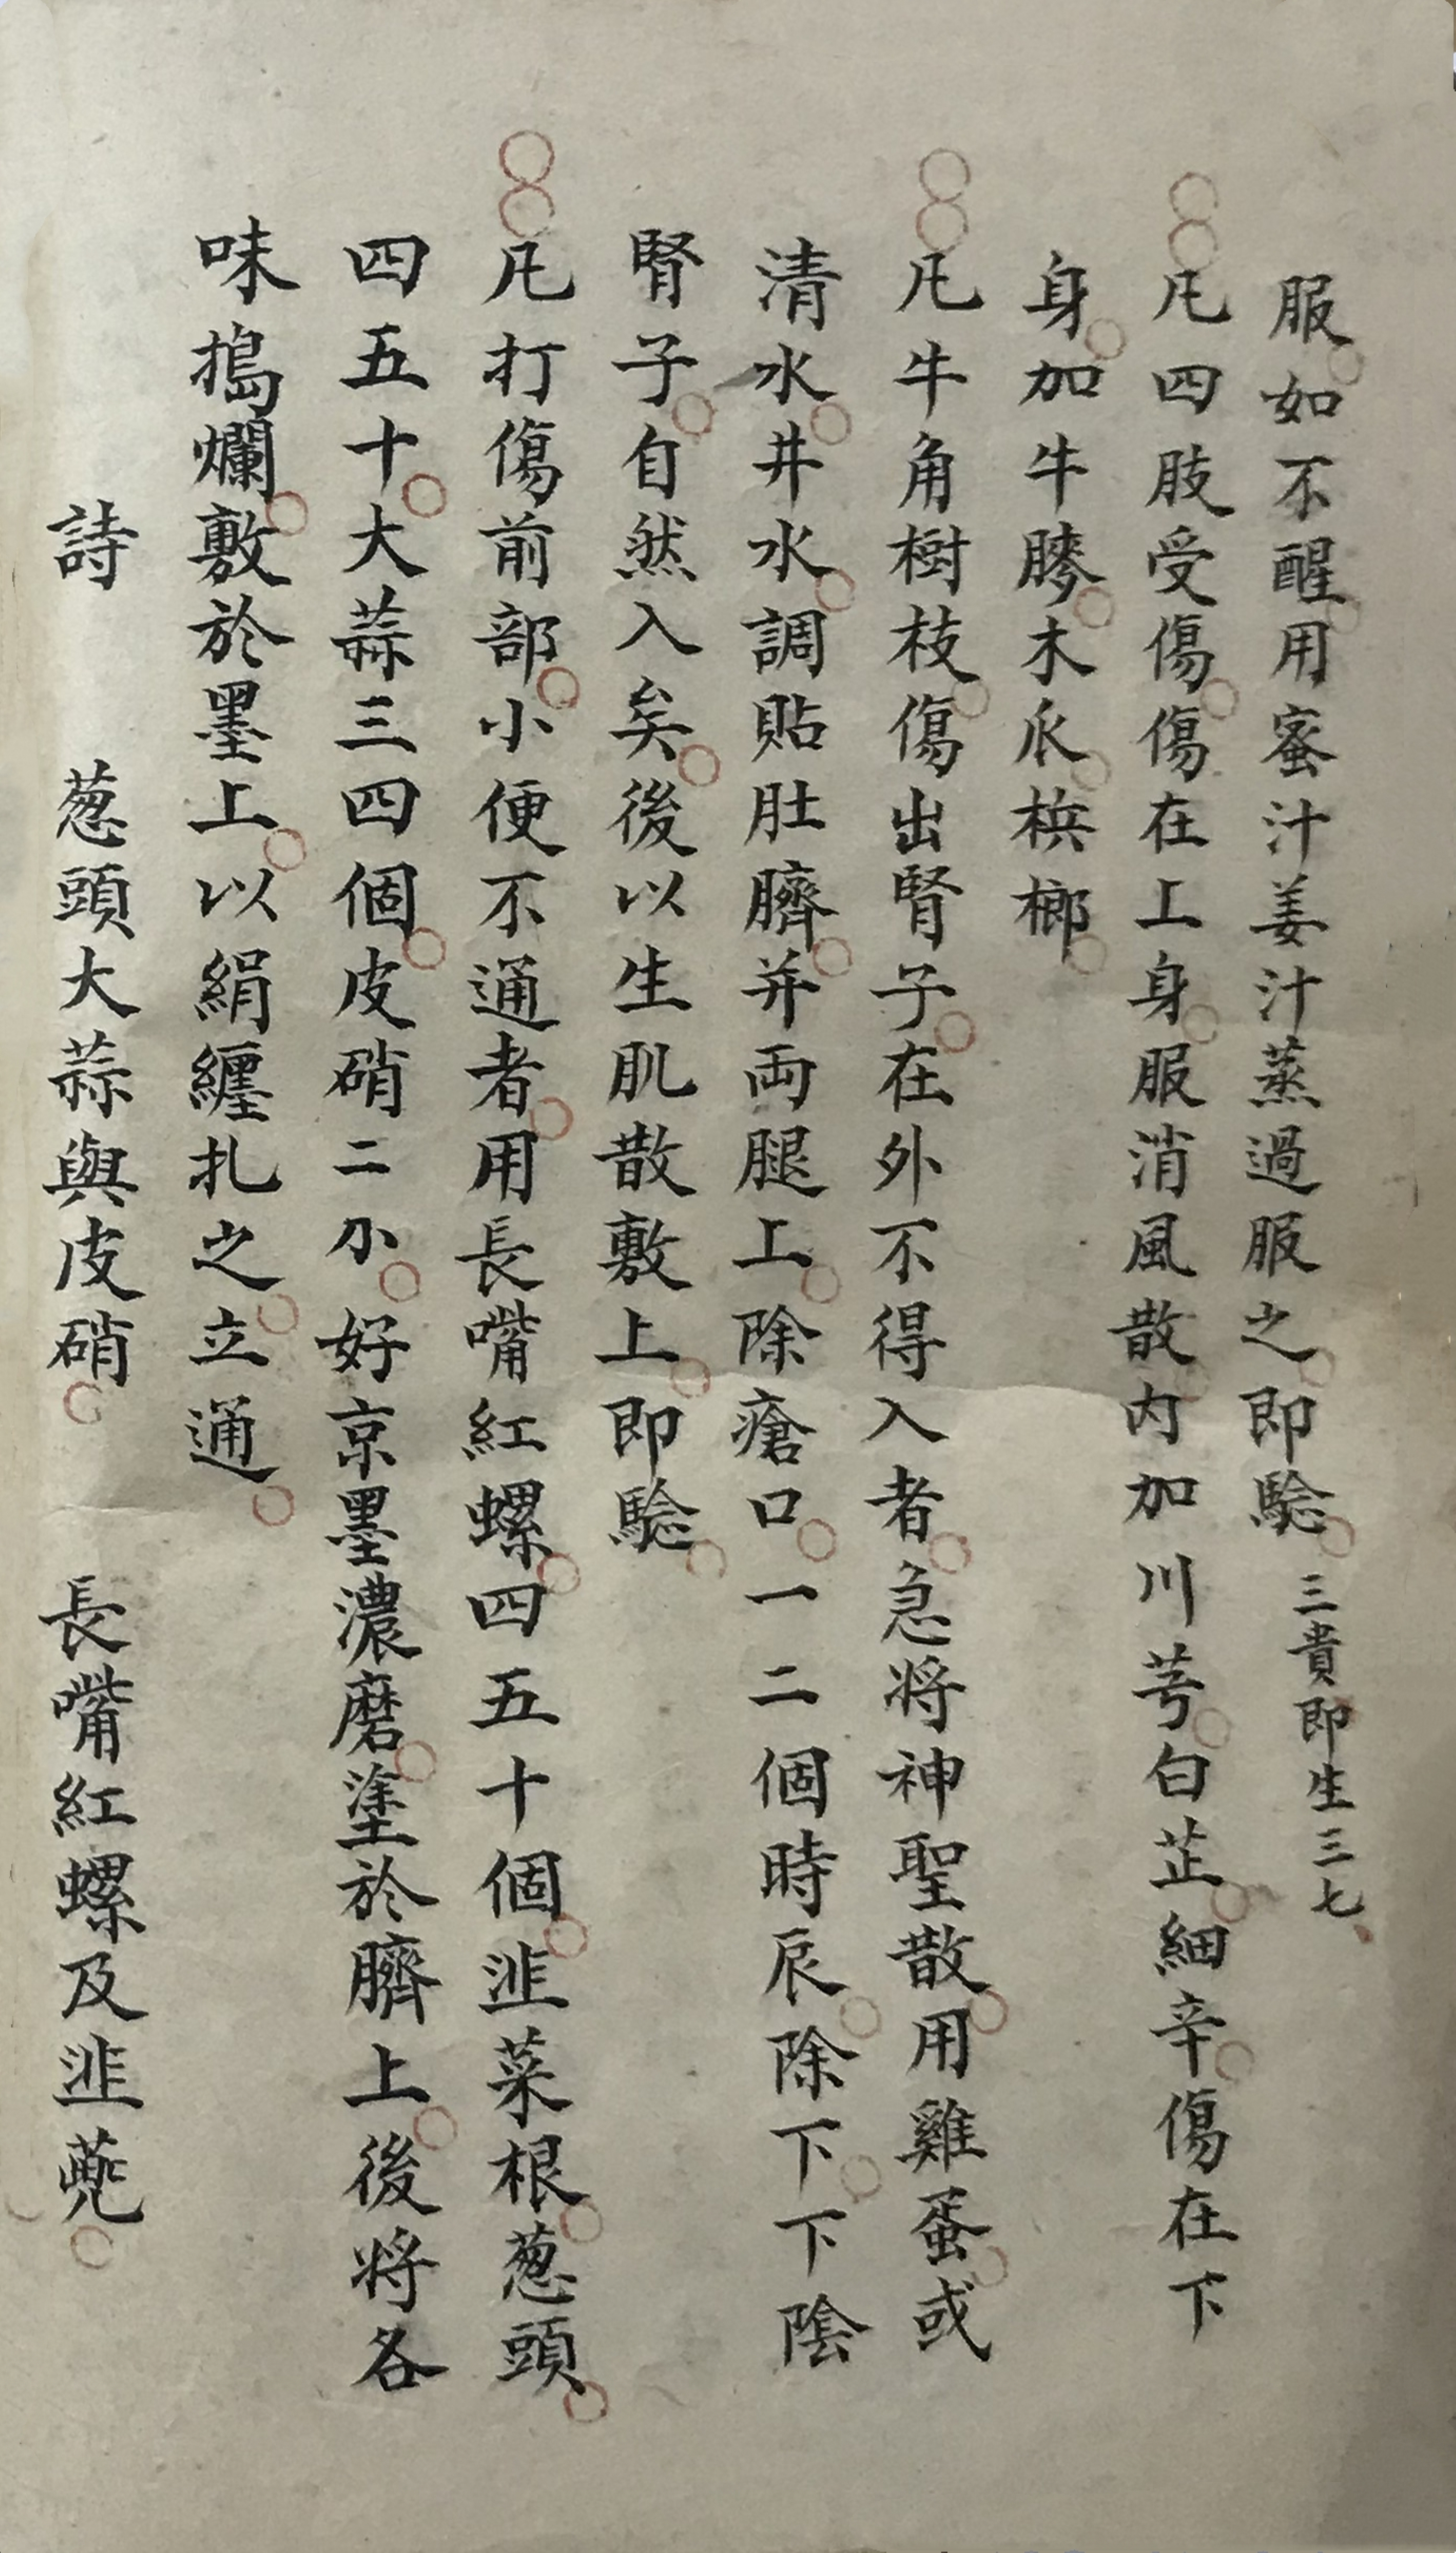 服如不醒用蜜汁姜汁蒸過服之即驗三貴即生三七
凡四肢受傷傷在上身服消風散内加川芎白芷細辛傷在下
身加牛膝木瓜梹榔
凡牛角樹枝傷出腎子在外不得入者急将神聖散用雞蛋或
清水井水調貼肚臍并両腿上除瘡口一二個時辰除下下陰
腎子自然入矣後以生肌散敷上即驗
凡打傷前部小便不通者用長嘴紅螺四五十個韮菜根葱頭
四五十大蒜三四個皮硝二小好京墨濃磨塗於臍上後将各
味搗爛敷於墨上以絹纏扎之立通
詩 葱頭大蒜與皮硝 長嘴紅螺及韮蔸